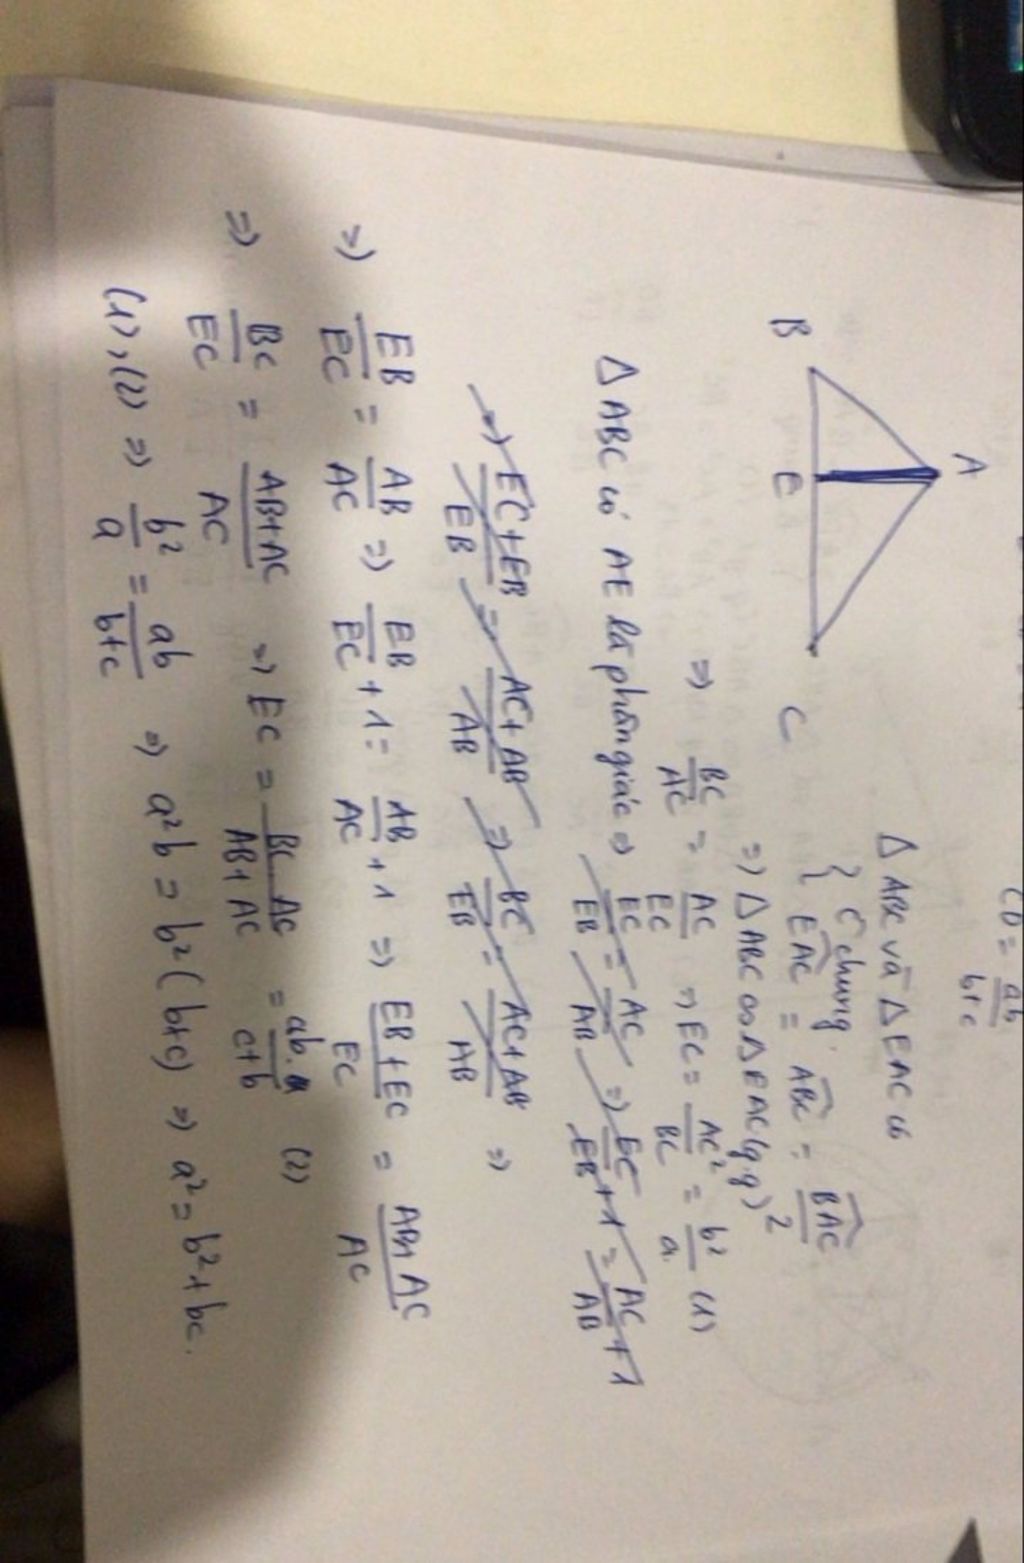 CD = ab/b+c
A
B
E
C
Δ ABC và Δ EAC có
{ Ĉ chung.
EAC = ABC = BAC/2
=> Δ ABC ∽ Δ EAC (g g)
=> BC/AC = AC/EC => EC = AC²/BC = b²/a (1)
Δ ABC có AE là phân giác => EC/EB = AC/AB => EC/EB + 1 = AC/AB + 1
=> EC+EB/EB = AC+AB/AB => BC/EB = AC+AB/AB =>
=> EB/EC = AB/AC => EB/EC + 1 = AB/AC + 1 => EB+EC/EC = AB+AC/AC
=> BC/EC = AB+AC/AC => EC = BC.AC/AB+AC = ab/c+b (2)
(1), (2) => b²/a = ab/b+c => a²b = b²(b+c) => a² = b² + bc.